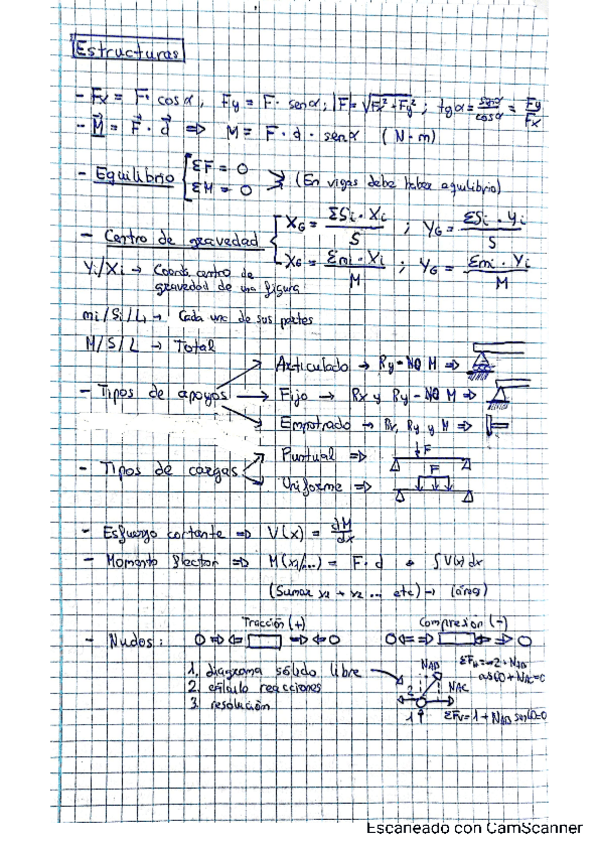 Estructuras
- Fx = F · cos α, Fy = F · sen α; |F| = √Fx² + Fy² ; tg α = sen α / cos α = Fy / Fx
- M = F · d ⇒ M = F · d · sen α (N·m)
- Equilibrio { ΣF = 0
ΣM = 0 (En vigas debe haber equilibrio)
- Centro de gravedad [ XG = ΣSi · Xi / S ; YG = ΣSi · yi / S
XG = Σmi · Xi / M ; YG = Σmi · Yi / M
Yi/Xi → Coords centro de
gravedad de una figura
mi/Si/Li → Cada una de sus partes
M/S/L → Total
- Tipos de apoyos → Articulado → Ry - NO M ⇒
→ Fijo → Rx y Ry - NO M ⇒
→ Empotrado → Rx, Ry y M ⇒
- Tipos de cargas → Puntual ⇒ F
→ Uniforme ⇒ F
- Esfuerzo cortante ⇒ V(x) = dM / dx
- Momento flector ⇒ M(x1/...) = F · d ∫V(x) dx
(Sumar x1 + x2 ... etc) → (área)
Tracción (+) Compresión (-)
- Nudos:
1. diagrama sólido libre
2. cálculo reacciones
3. resolución
NAB
NAC
2
1
ΣFH = -2 + NAB
cos60 + NAC = 0
ΣFV = 1 + NAB sen60 = 0
Escaneado con CamScanner